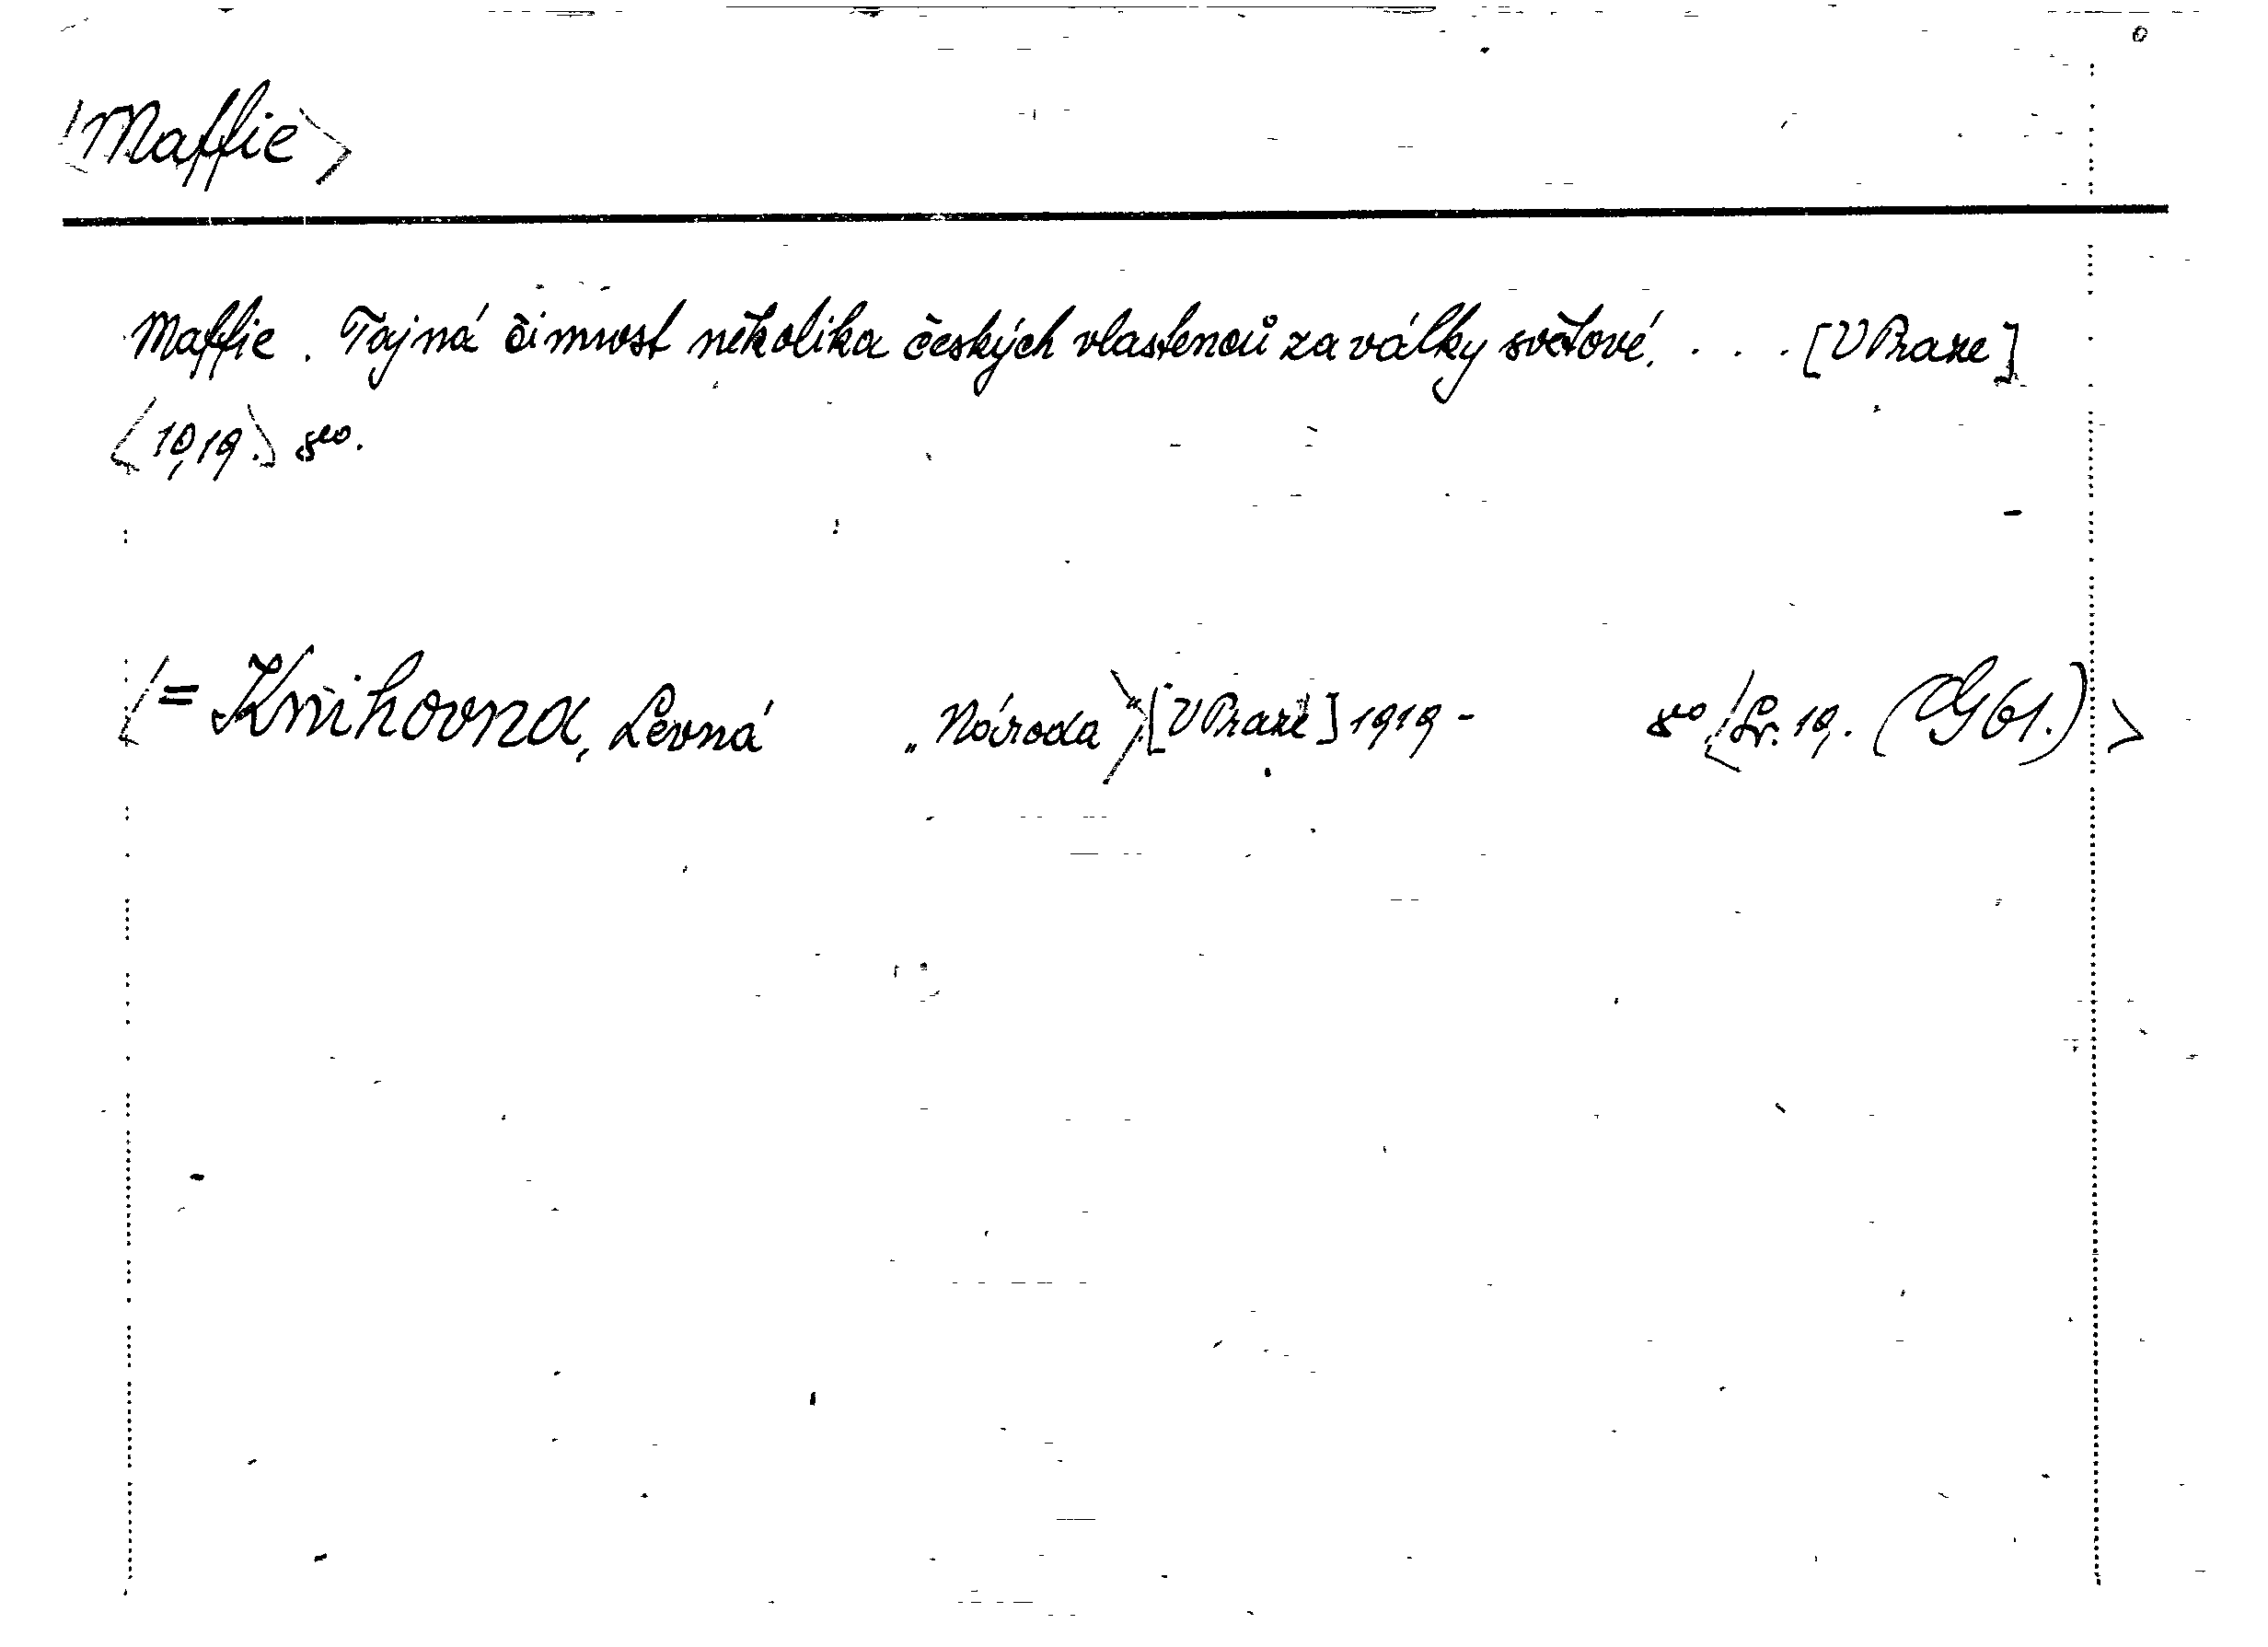 <Maffie>
Maffie. Tajná činnost několika českých vlastenců za války světové. . . . [V Praze]
<1919.> 8vo.
<= Knihovna, Levná „Národa"> [V Praze] 1919 - 8vo <Sv. 19. (G61.)>